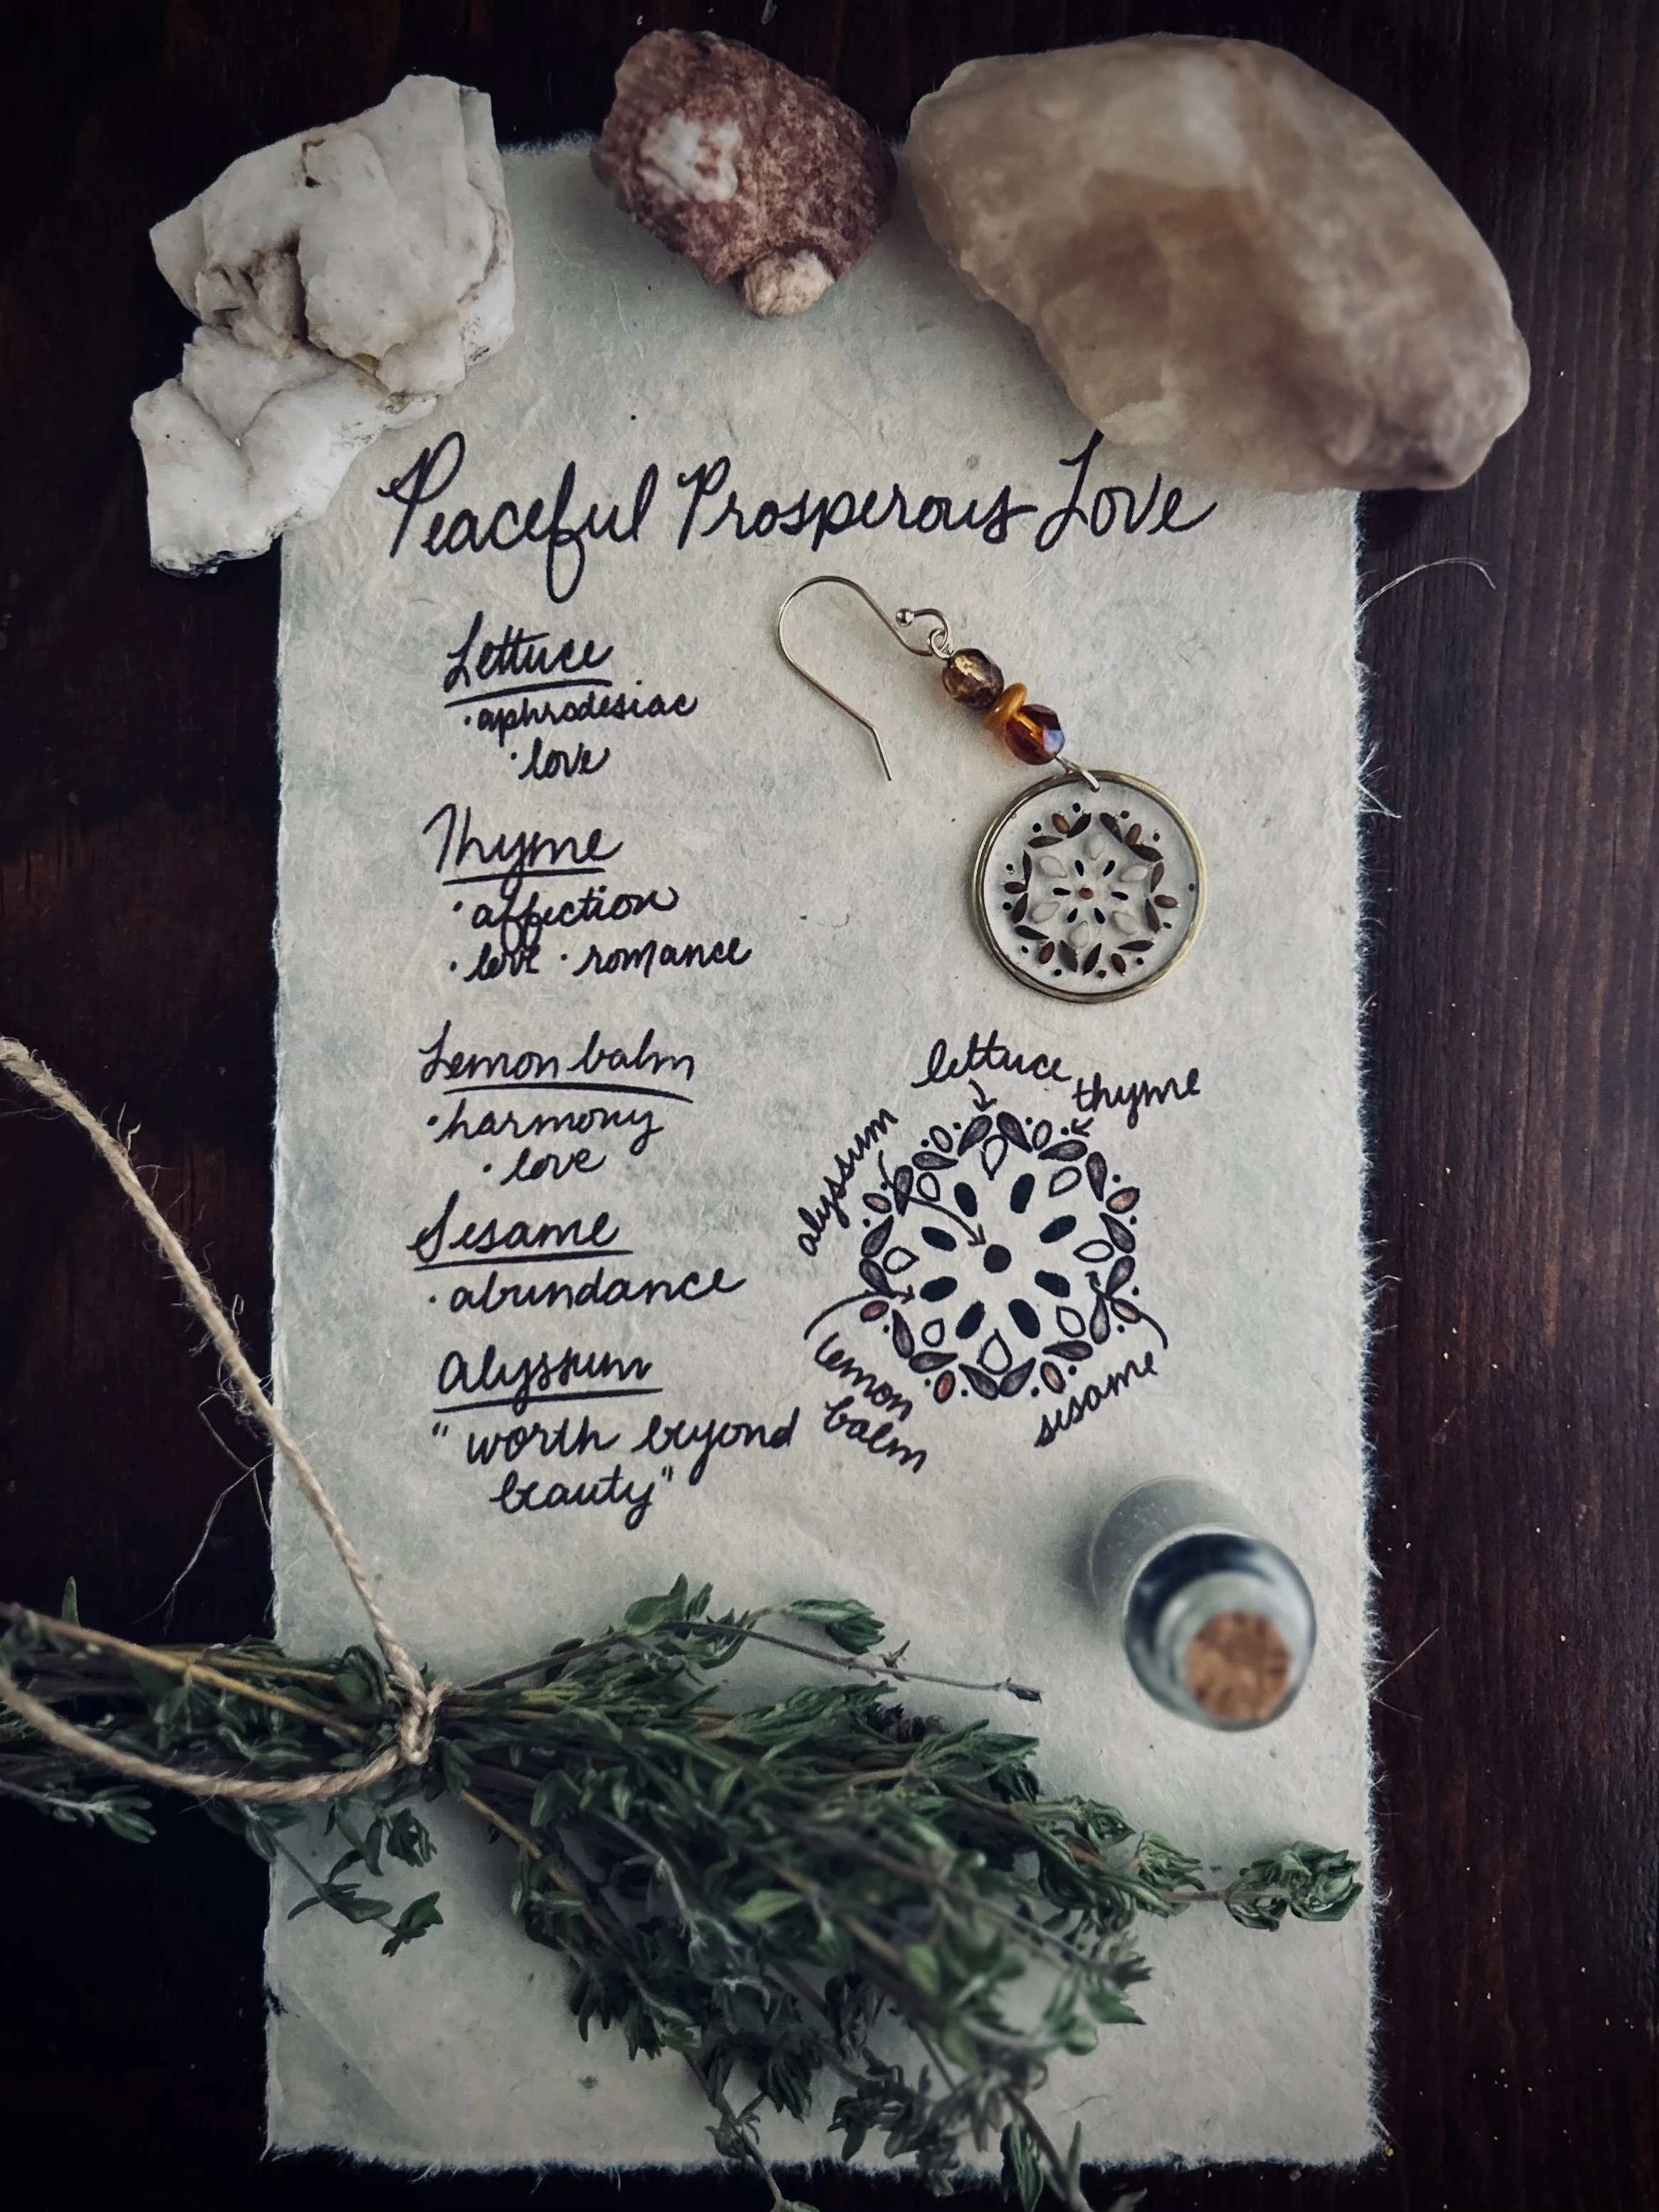 Peaceful Prosperous Love
Lettuce
·aphrodesiac
·love
Thyme
·affection
·love ·romance
Lemon balm
·harmony
·love
Sesame
·abundance
Alyssum
"worth beyond
beauty"
lettuce
thyme
alyssum
lemon
balm
sesame